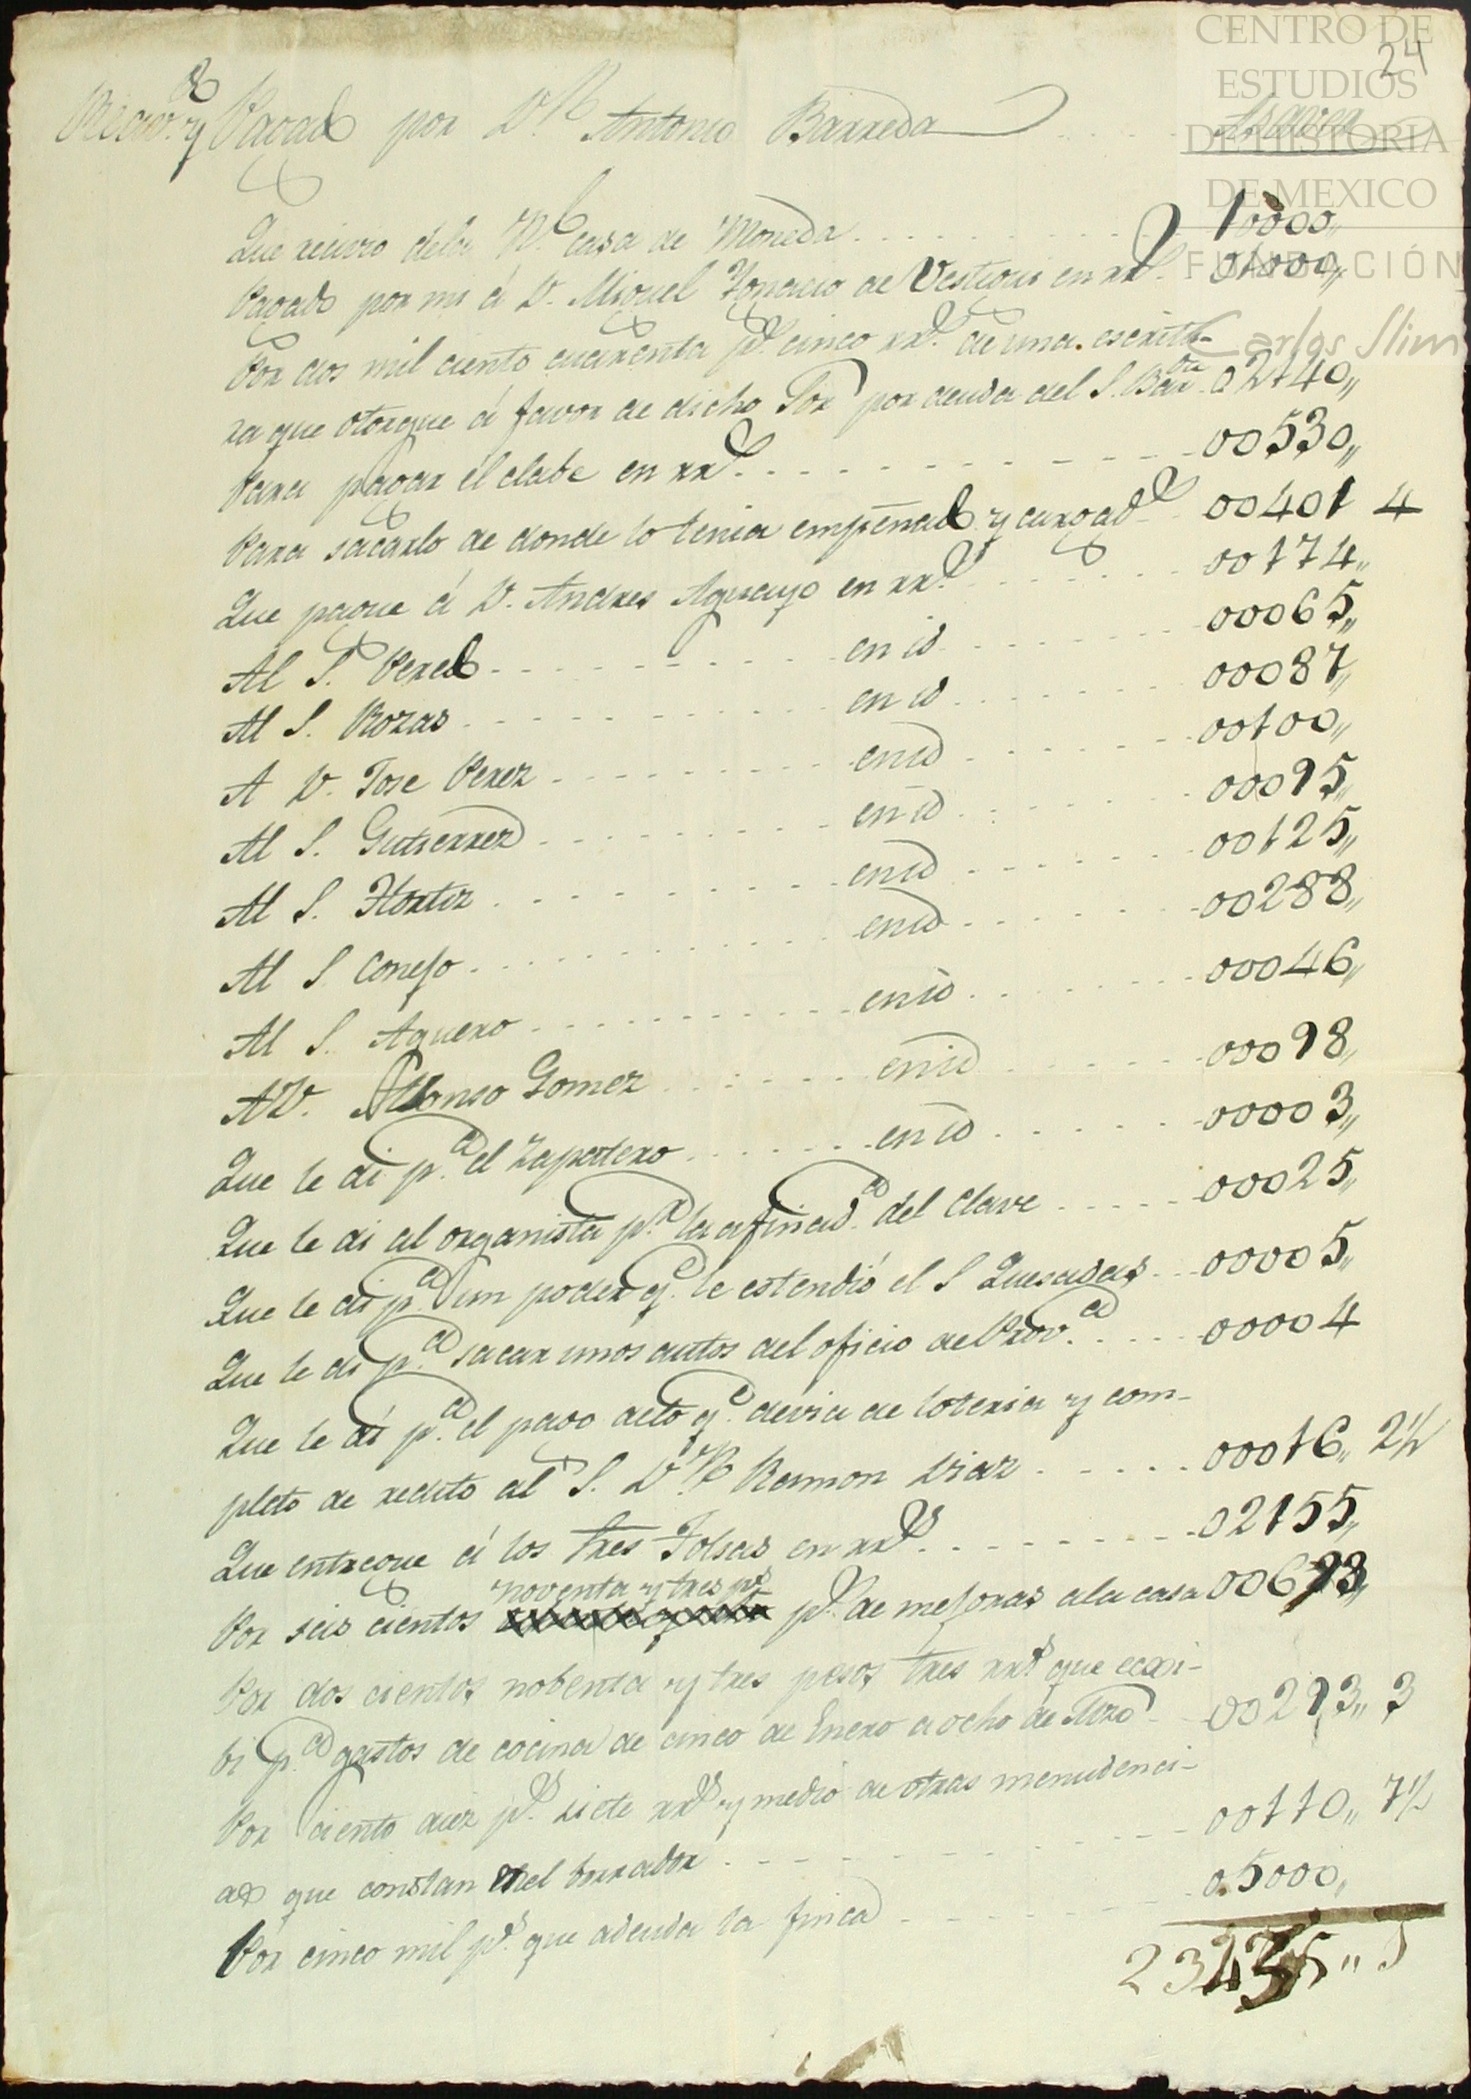 CENTRO DE
ESTUDIOS
DE HISTORIA
DE MEXICO
FUNDACIÓN
Carlos Slim
24
y Pagado por Dn. Antonio Barreda
Que recivio dela Rl. casa de Moneda 10000,,
Pagado por mi á D. Miguel Ygnacio de en rrs. 01000,,
Por dos mil ciento cuarenta ps. cinco rrs. de una escritu-
ra que otorgue á favor de dicho Sor por deuda del S. 02140,,
Para pagar el clabe en rrs. 00530,,
Para sacarlo de donde lo tenia empeñado y 00401 4
Que pague á D. Andres Aguayo en rrs. 00174,,
Al S. Perez en id 00065,,
Al S. Rozas en id 00087,,
A D. Jose Perez en id 00100,,
Al S. Gutierrez en id 00095,,
Al S. Hortiz en id 00125,,
Al S. Conejo en id 00288,,
Al S. Aguero en id 00046,,
A D. Alonso Gomez en id 00098,,
Que le di pa. el Zapatero en id 00003,,
Que le di al organista pa. la afinada. del Clave 00025,,
Que le di pa. un poder qe. le estendió el S Quesadas 00005,,
Que le di pa. sacar unos autos del oficio de Prova. 00004
Que le di pa. el pago de lo qe. devia de loteria y com-
pleto de redito al S. Dn. Ramon Diaz 00016,, 2½
Que entregue á los tres Folsas en rrs. 02155,,
noventa y tres ps
Por seis cientos ps. de mejoras ala casa 00693,,
Por dos cientos nobenta y tres pesos tres rrs que eccsi-
bi pa gastos de cocina de cinco de Enero a ocho de 00293,, 3
Por ciento diez ps. siete rrs y medio de otras menudenci-
as que constan enel borrador 00110,, 7½
Por cinco mil ps. que adeuda la finca 05000,,